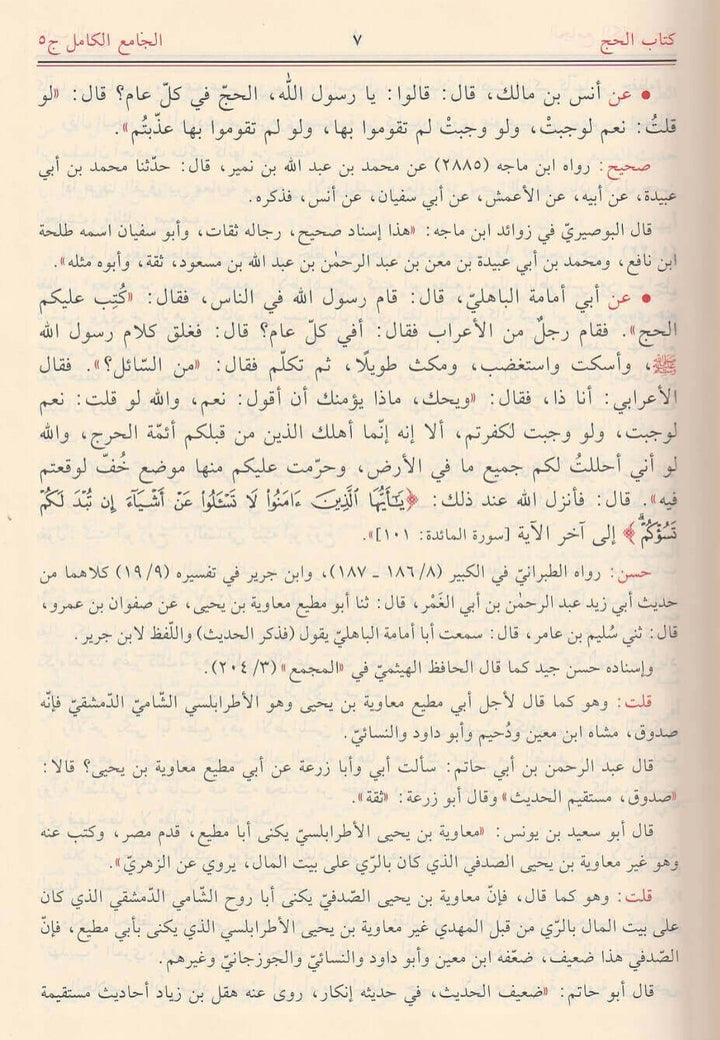 كتاب الحج ٧ الجامع الكامل ج٥
• عن أنس بن مالك، قال: قالوا: يا رسول الله، الحجّ في كلّ عام؟ قال: «لو
قلتُ: نعم لوجبتْ، ولو وجبتْ لم تقوموا بها، ولو لم تقوموا بها عذّبتُم».
صحيح: رواه ابن ماجه (٢٨٨٥) عن محمد بن عبد الله بن نمير، قال: حدّثنا محمد بن أبي
عبيدة، عن أبيه، عن الأعمش، عن أبي سفيان، عن أنس، فذكره.
قال البوصيريّ في زوائد ابن ماجه: «هذا إسناد صحيح، رجاله ثقات، وأبو سفيان اسمه طلحة
ابن نافع، ومحمد بن أبي عبيدة بن معن بن عبد الرحمٰن بن عبد الله بن مسعود، ثقة، وأبوه مثله».
• عن أبي أمامة الباهليّ، قال: قام رسول الله في الناس، فقال: «كُتِب عليكم
الحج». فقام رجلٌ من الأعراب فقال: أفي كلّ عام؟ قال: فغلق كلام رسول الله
ﷺ، وأسكت واستغضب، ومكث طويلًا، ثم تكلّم فقال: «من السّائل؟». فقال
الأعرابي: أنا ذا، فقال: «ويحك، ماذا يؤمنك أن أقول: نعم، والله لو قلت: نعم
لوجبت، ولو وجبت لكفرتم، ألا إنه إنّما أهلك الذين من قبلكم أئمّة الحرج، والله
لو أني أحللتُ لكم جميع ما في الأرض، وحرّمت عليكم منها موضع خُفّ لوقعتم
فيه». قال: فأنزل الله عند ذلك: ﴿يَٰٓأَيُّهَا ٱلَّذِينَ ءَامَنُواْ لَا تَسْـَٔلُواْ عَنْ أَشْيَآءَ إِن تُبْدَ لَكُمْ
تَسُؤْكُمْ﴾ إلى آخر الآية [سورة المائدة: ١٠١]».
حسن: رواه الطبرانيّ في الكبير (٨/ ١٨٦ ـ ١٨٧)، وابن جرير في تفسيره (٩/ ١٩) كلاهما من
حديث أبي زيد عبد الرحمٰن بن أبي الغَمْر، قال: ثنا أبو مطيع معاوية بن يحيى، عن صفوان بن عمرو،
قال: ثني سُليم بن عامر، قال: سمعت أبا أمامة الباهليّ يقول (فذكر الحديث) واللّفظ لابن جرير.
وإسناده حسن جيد كما قال الحافظ الهيثميّ في «المجمع» (٣/ ٢٠٤).
قلت: وهو كما قال لأجل أبي مطيع معاوية بن يحيى وهو الأطرابلسي الشاميّ الدّمشقيّ فإنّه
صدوق، مشاه ابن معين ودُحيم وأبو داود والنسائيّ.
قال عبد الرحمن بن أبي حاتم: سألت أبي وأبا زرعة عن أبي مطيع معاوية بن يحيى؟ قالا:
«صدوق، مستقيم الحديث» وقال أبو زرعة: «ثقة».
قال أبو سعيد بن يونس: «معاوية بن يحيى الأطرابلسيّ يكنى أبا مطيع، قدم مصر، وكتب عنه
وهو غير معاوية بن يحيى الصدفي الذي كان بالرّي على بيت المال، يروي عن الزهريّ».
قلت: وهو كما قال، فإنّ معاوية بن يحيى الصّدفيّ يكنى أبا روح الشّامي الدّمشقي الذي كان
على بيت المال بالرّي من قبل المهدي غير معاوية بن يحيى الأطرابلسي الذي يكنى بأبي مطيع، فإنّ
الصّدفي هذا ضعيف، ضعّفه ابن معين وأبو داود والنسائيّ والجوزجانيّ وغيرهم.
قال أبو حاتم: «ضعيف الحديث، في حديثه إنكار، روى عنه هقل بن زياد أحاديث مستقيمة